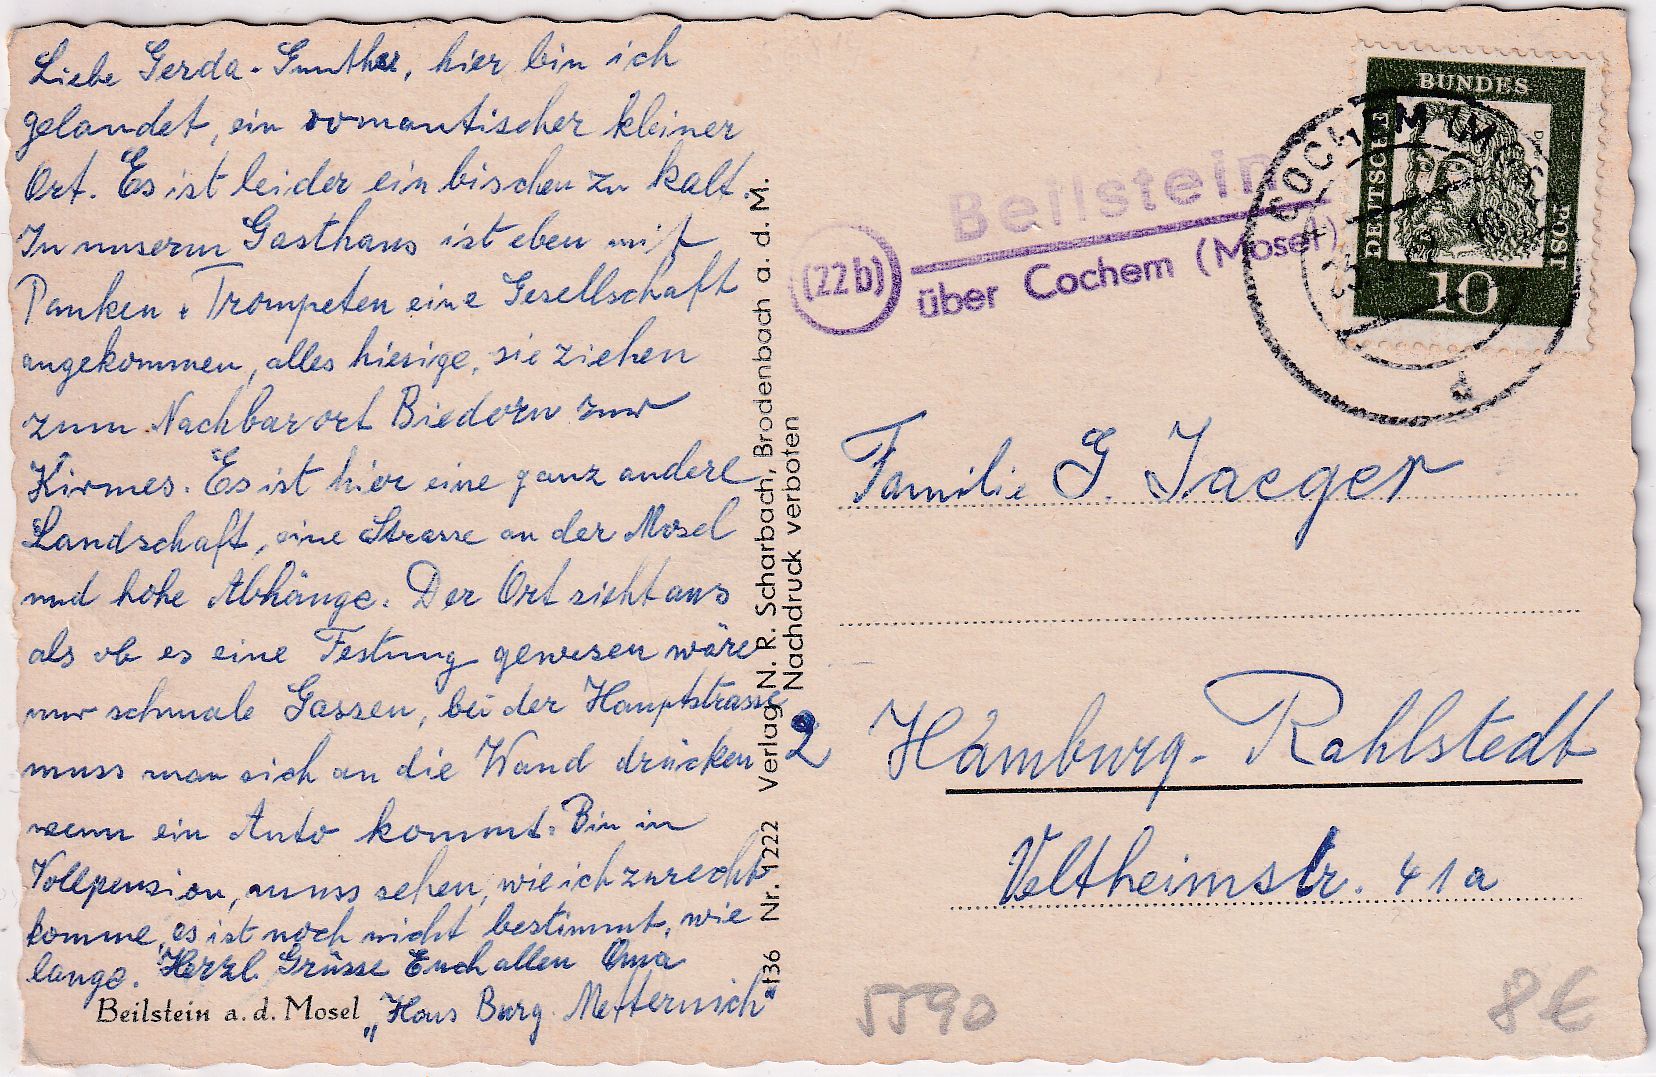 Liebe Gerda - Gunther, hier bin ich
gelandet, ein romantischer kleiner
Ort. Es ist leider ein bischen zu kalt.
In unserm Gasthaus ist eben mit
Pauken u Trompeten eine Gesellschaft
angekommen, alles hiesige, sie ziehen
zum Nachbarort Biedorn zur
Kirmes. Es ist hier eine ganz andere
Landschaft, eine Strasse an der Mosel
und hohe Abhänge. Der Ort sieht aus
als ob es eine Festung gewesen wäre
nur schmale Gassen, bei der Hauptstrasse
muss man sich an die Wand drücken
wenn ein Auto kommt. Bin in
Vollpension, muss sehen, wie ich zurecht
komme, es ist noch nicht bestimmt, wie
lange. Herzl. Grüsse Euch allen Oma
Beilstein a. d. Mosel „Haus Burg Metternich"
136 Nr. 1222 Verlag N. R. Scharbach, Brodenbach a. d. M.
Nachdruck verboten
(22b)
Beilstein
über Cochem (Mosel)
COCHEM (MOSEL)
d
DEUTSCHE
BUNDES
POST
10
Familie G. Jaeger
2 Hamburg-Rahlstedt
Veltheimstr. 41a
5590
8€